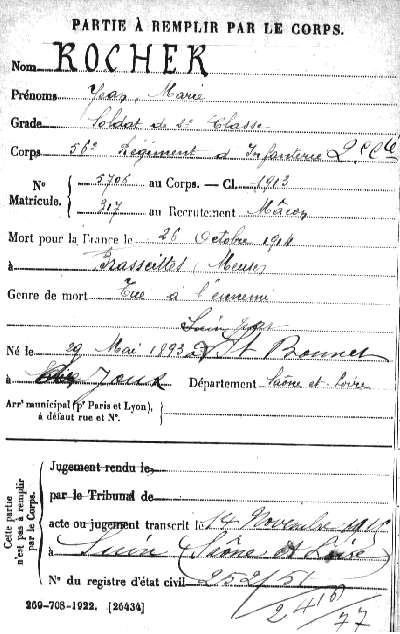 PARTIE À REMPLIR PAR LE CORPS.
Nom ROCHER
Prénoms Jean, Marie
Grade Soldat de 2e Classe
Corps 56e Régiment d'Infanterie 2e Cie
N° Matricule. { 5706 au Corps. — Cl. 1913
917 au Recrutement Mâcon
Mort pour la France le 26 Octobre 1914
à (Meuse)
Genre de mort Tué à l'ennemi
Né le 29 Mai 1893 à St Bonnet
à de Joux Département Saône-et-Loire
Arrt municipal (pr Paris et Lyon),
à défaut rue et N°.
Cette partie n'est pas à remplir par le Corps.
Jugement rendu le
par le Tribunal de
acte ou jugement transcrit le 14 Novembre 1915
à Suin (Saône et Loire)
N° du registre d'état civil 252/51
269-708-1922. [26434]